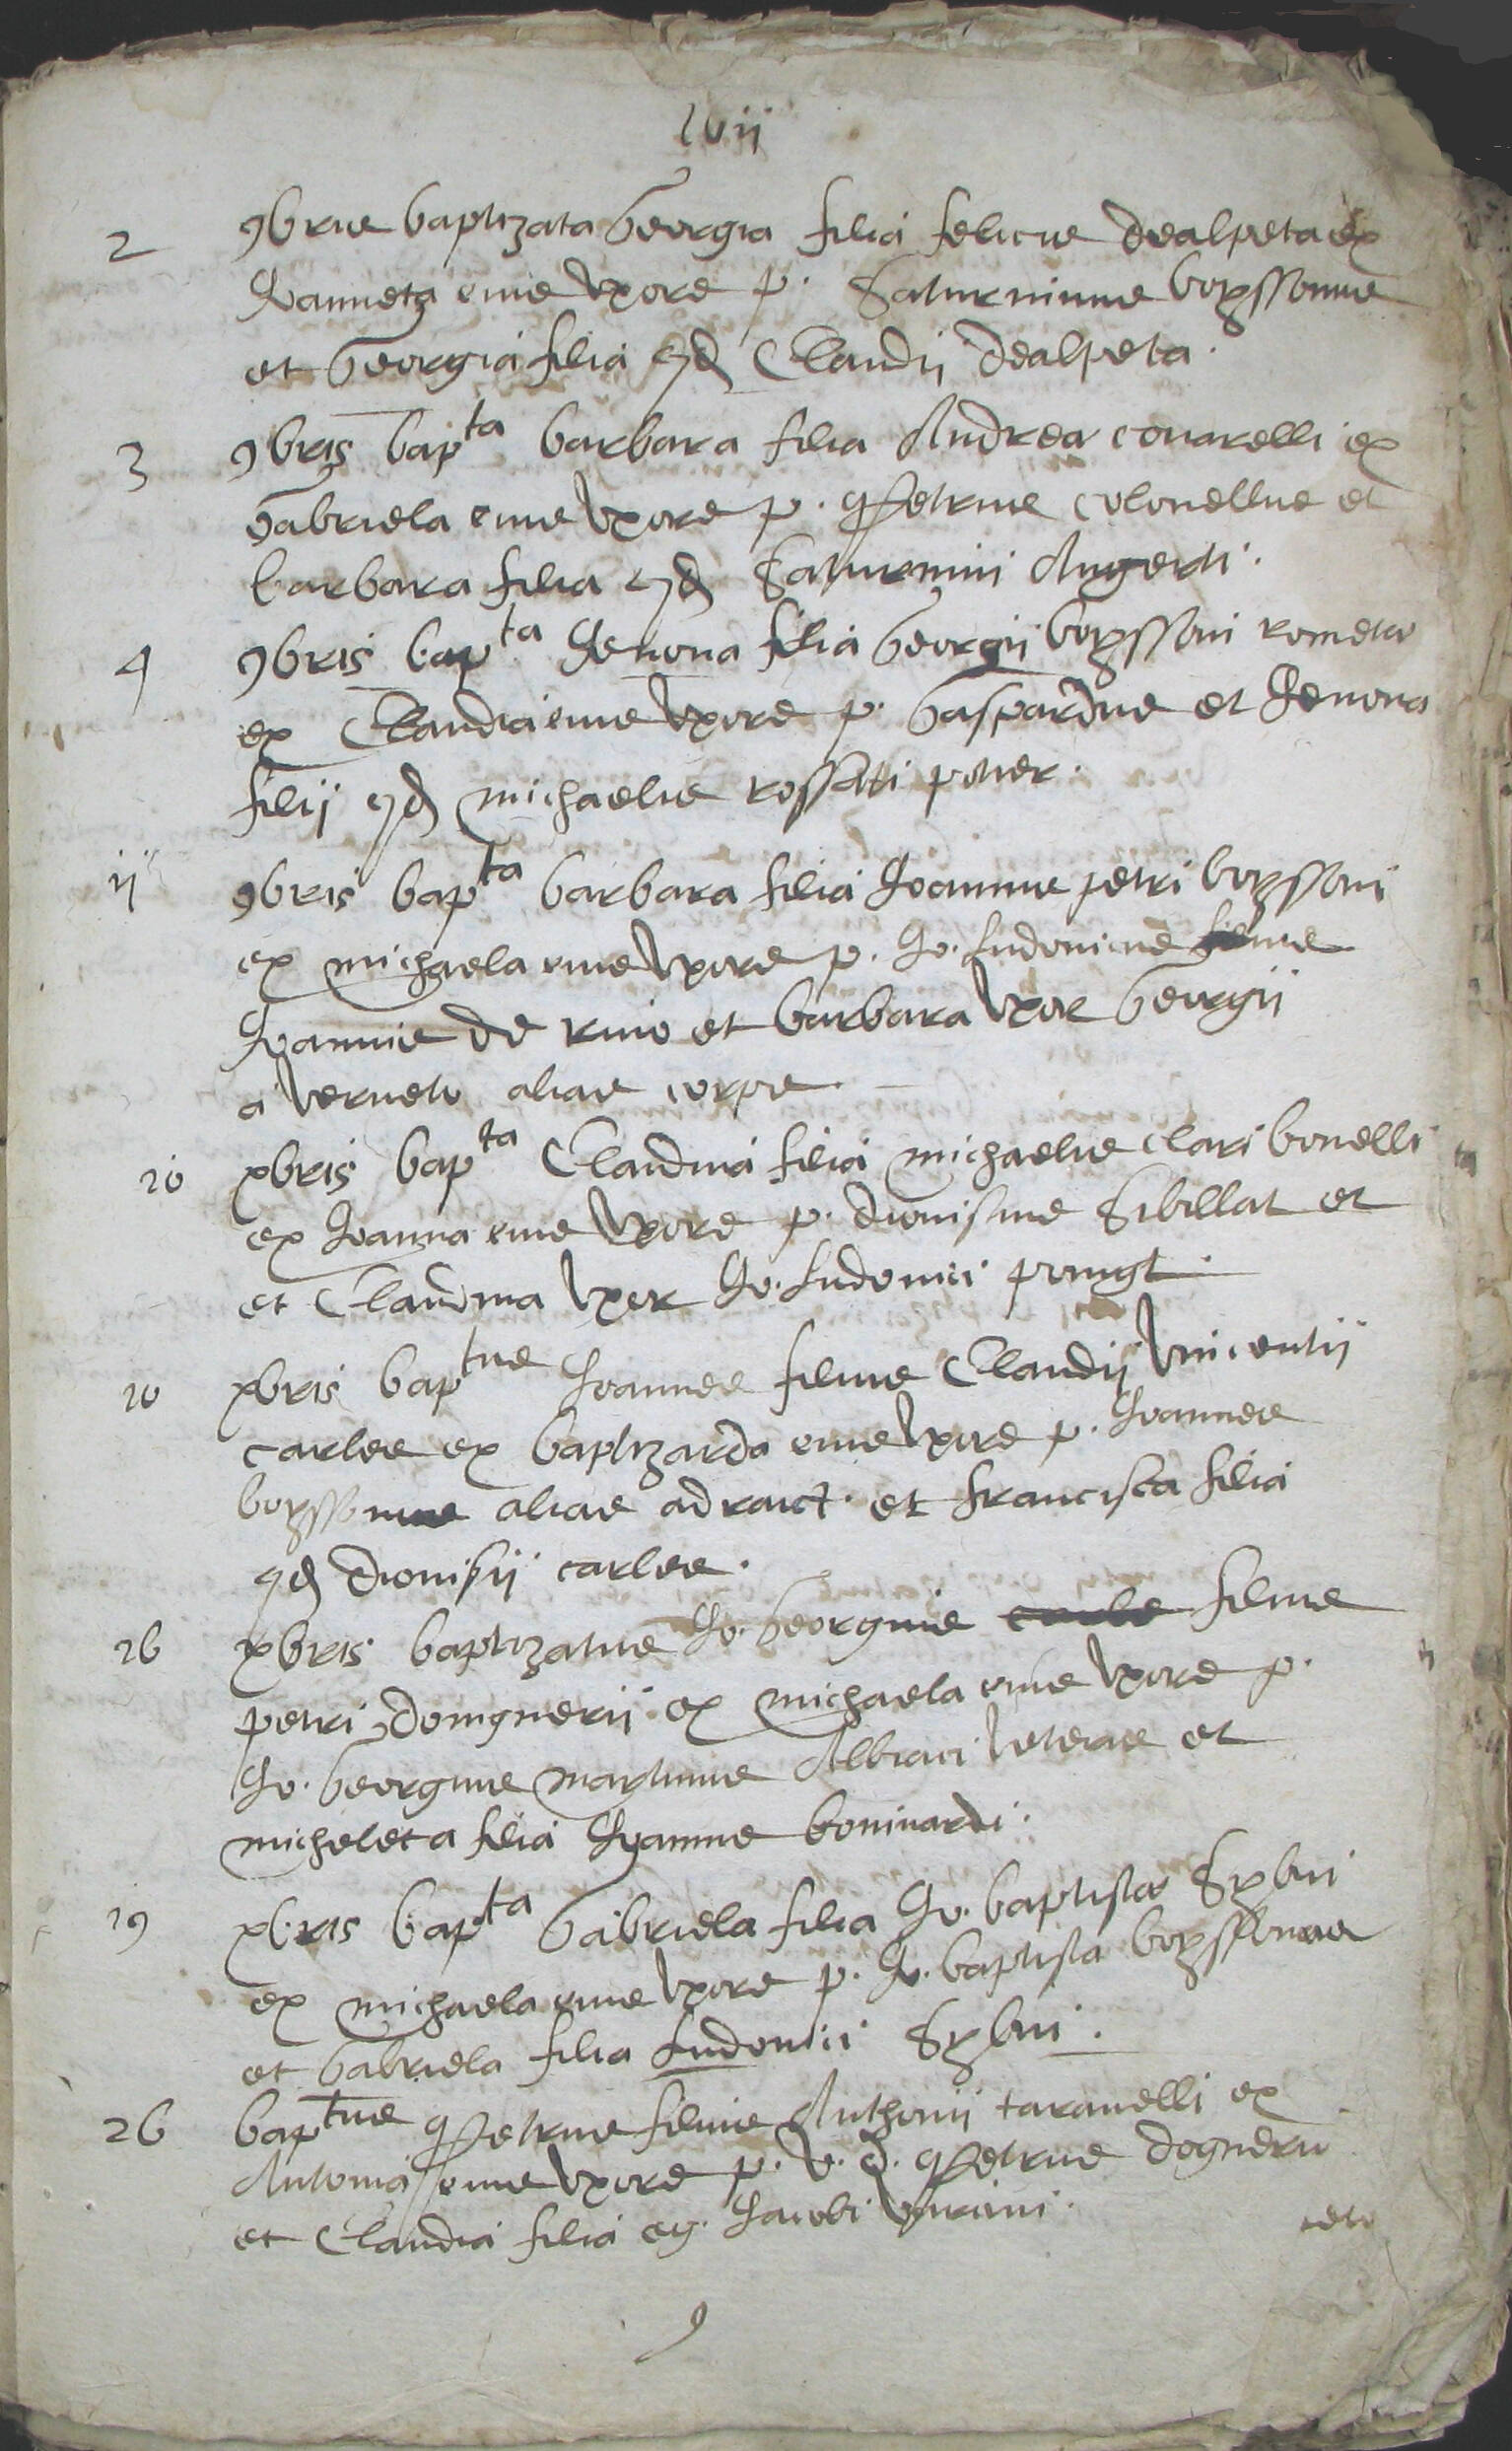 lvii
2 9bris baptizata Georgia filia felicis dealpeta ex
Joanneta eius uxore p. Saturninus boyssonus
et Georgia filia qd Claudii dealpeta.
3 9bris bapta barbara filia Andreae conarelli ex
Gabriela eius uxore p. Petrus colonellus et
barbara filia qd Saturnini Augerdi.
4 9bris bapta Jenona filia Georgii boyssoni rometa
ex Claudia eius uxore p. Gaspardus et Jenona
filii qd michaelis rossati poner.
ii 9bris bapta barbara filia Joannis petri boyssoni
ex michaela eius uxore p. Jo. Ludovicus filius
Joannis de rivo et barbara uxor Georgii
a Verneto alias corps
10 xbris bapta Claudina filia michaelis clari bonelli
ex Joanna eius uxore p. dionisius Sibillat et
et Claudina uxor Jo. Ludovici
10 xbris baptus Joannes filius Claudii Vincentii
carles ex baptizarda eius uxore p. Joannes
boyssonus alias adraict. et francisca filia
qd Dionisii carles.
16 xbris baptizatus Jo. Georgius carle filius
petri domgnerii ex michaela eius uxore p.
Jo. Georgius martinus Albraci Veteris et
micheleta filia Joannis boninardi.
19 xbris bapta Gabriela filia Jo. baptistae Sybui
ex michaela eius uxore p. Jo. baptista boyssonus
et Gabriela filia Ludovici Sybui.
26 baptus Petrus filius Anthonii taravelli ex
Antonia eius uxore p. v. d. Petrus dognerii
et Claudia filia eg. Jacobi